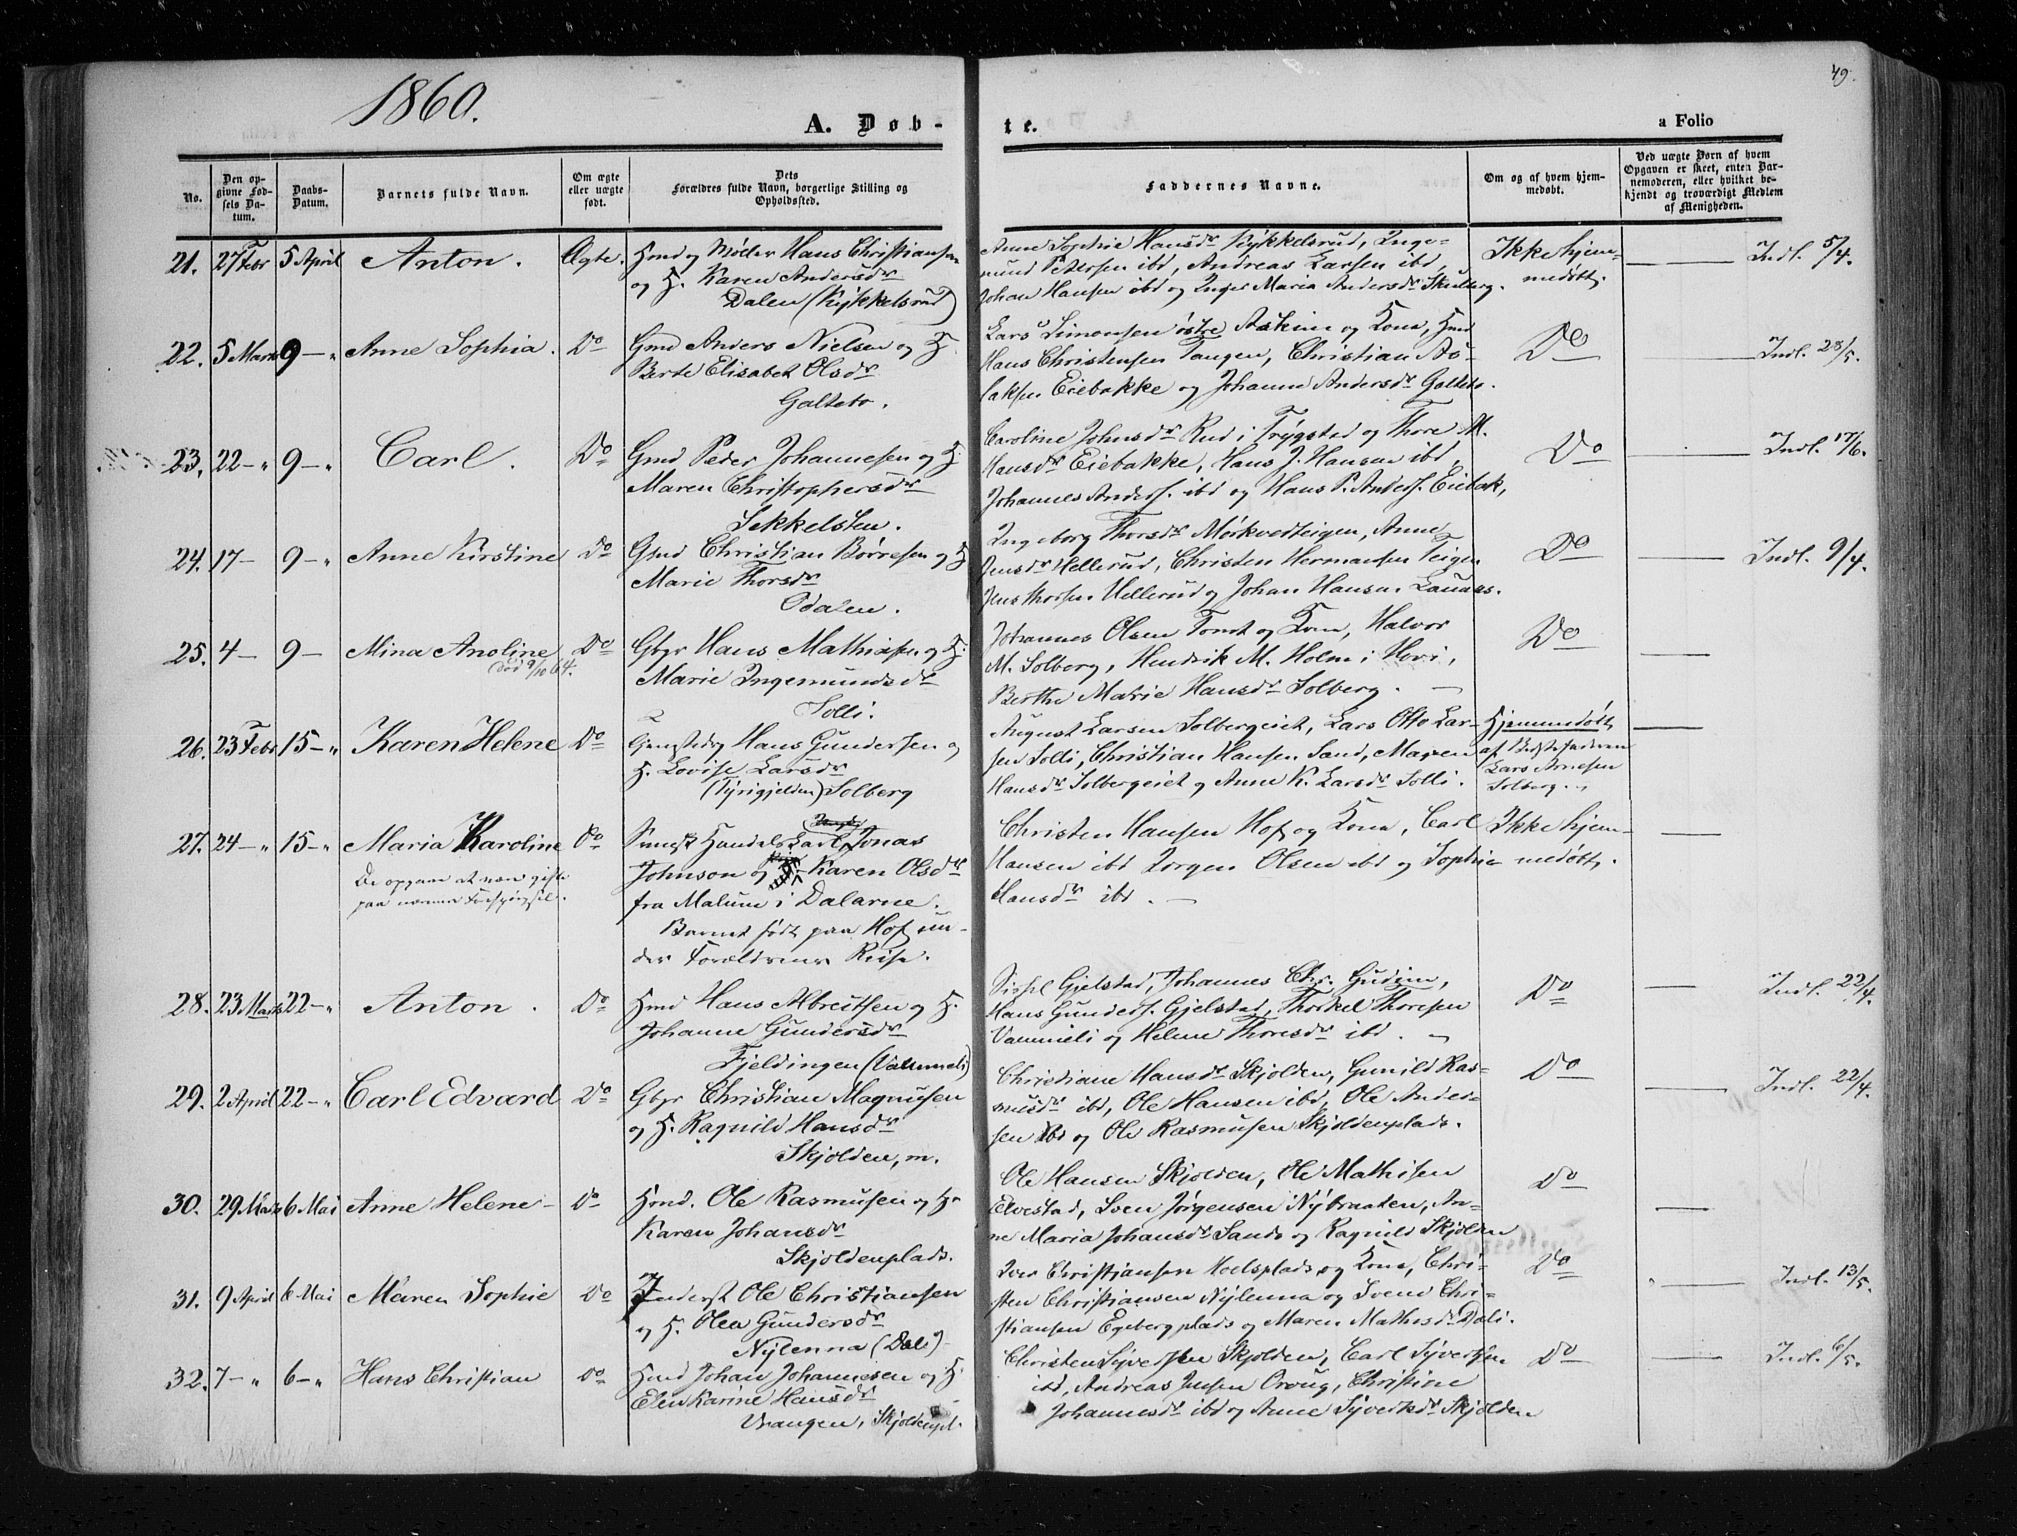 1860.
A. Døb-
te.
a Folio
49.
No.
Den op-
givne Fød-
sels Da-
tum.
Daabs-
Datum.
Barnets fulde Navn.
Om ægte
eller uægte
født.
Dets
Forældres fulde Navn, borgerlige Stilling og
Opholdssted.
Faddernes Navne.
Om og af hvem hjem-
medøbt.
Ved uægte Børn af hvem
Opgaven er skeet, enten Bar-
nemoderen, eller hvilket be-
kjendt og troværdigt Medlem
af Menigheden.
21. 27 Febr 5 April Anton. Ægte. Hmd og Møller Hans Christiansen
og H. Karen Andersdr
Dalen (Kykkelsrud)
Anne Sophie Hansdr Kykkelsrud, Inge-
mund Petersen ibd, Andreas Larsen ibd,
Johan Hansen ibd og Inger Maria Andersdr Skulberg.
Ikke hjem-
medøbt.
Indl. 5/4.
22. 5 Marts 9 – " Anne Sophia. Do Gmd Anders Nielsen og H.
Berte Elisabet Olsdr
Galtebo.
Lars Simonsen østre Askim og Kone, Hmd
Hans Christensen Tangen, Christian As-
laksen Eiebakke og Johanne Andersdr Galtebo.
Do
Indl. 28/5.
23. 22 – " 9 – " Carl. Do Gmd Peder Johannesen og H.
Maren Christophersdr
Sekkelsten.
Caroline Johnsdr Rud i Trygstad og Thore M.
Hansdr Eiebakke, Hans J. Hansen ibd,
Johannes Anders. ibd og Hans P. Anders. Eiebak,
Do
Indl. 17/6.
24. 17 – 9 – " Anne Kirstine Do Gmd Christian Børresen og H
Marie Thorsdr
Odalen.
Ingeborg Thorsdr Mørkvedteigen, Anne
Jensdr Hellerud, Christen Hermansen Teigen
Jens Thorsen Hellerud og Johan Hansen
Do
Indl. 9/4.
25. 4 – 9 – Mina Anoline Do Gbgr Hans Mathisen og H.
Død 9/10 64.
Marie Ingemundsdr
Solli.
Johannes Olsen Tomt og Kone, Halvor
M. Solberg, Hendrik M. Holm i Hovi,
Berthe Marie Hansdr Solberg. –
Do
26. 23 Febr 15 – " Karen Helene Do Hans Gundersen og
H. Lovise Larsdr
(Tyrigjelden) Solberg
August Larsen Solbergeiet, Lars Otto Lar-
sen Solli, Christian Hansen Sand, Maren
Hansdr Solbergeiet og Anne K. Larsdr Solli.
Hjemmedøbt
af Bedstefaderen
Lars Arnesen
Solberg.
27. 24 – " 15 – " Maria Karoline Do Svensk Handelskarl Jonas
De opgave at være gifte
paa nærmere Forespørgsel.
Johnson og Karen Olsdr
fra Malum i Dalarne.
Barnet født paa Hof un-
der Forældrenes Reise.
Christen Hansen Hof og Kone, Carl
Hansen ibd Jørgen Olsen ibd og Sophie
Hansdr ibd. –
Ikke hjem-
medøbt.
28. 23 Marts 22 – " Anton. Do Hmd Hans Albretsen og H.
Johanne Gundersdr
Fjeldingen (Vammeli)
Gjelstad, Johannes Chr. Gudim,
Hans Gunders. Gjelstad, Thorkel Thoresen
Vammeli og Helene Thoresdr ibd. –
Do
Indl. 22/4.
29. 2 April 22 – " Carl Edvard Do Gbgr Christian Magnusen
og H. Ragnild Hansdr
Skjolden, m.
Christiane Hansdr Skjolden, Gunild Ras-
musdr ibd, Ole Hansen ibd, Ole Ander-
sen ibd og Ole Rasmusen Skjoldenplads.
Do
Indl. 22/4.
30. 29 Marts 6 Mai Anne Helene – Do Hmd. Ole Rasmusen og H.
Karen Johansdr
Skjoldenplads.
Ole Hansen Skjolden, Ole Mathisen
Elvestad, Sven Jørgensen Nybraaten, An-
ne Maria Johansdr Sande og Ragnild Skjolden
Do
31. 9 April 6 Mai Maren Sophie Do Inderst Ole Christiansen
og H. Olea Gundersdr
Nylenna (Dali)
Iver Christiansen Hoelsplads og Kone, Chri-
sten Christiansen Nylenna og Svend Chri-
stiansen Egebergplads og Maren Mathisdr Dali.
Do
Indl. 13/5.
32. 7 – " 6 – " Hans Christian Do Hmd Johan Johannesen og H.
Elen Karine Hansdr
Vrangen, Skjoldenpl.
Christen Syversen Skjolden, Carl Syversen
ibd, Andreas Jensen Oraug, Christine
Johannesdr ibd og Anne Syvertsdr Skjolden
Do
Indl. 6/5.